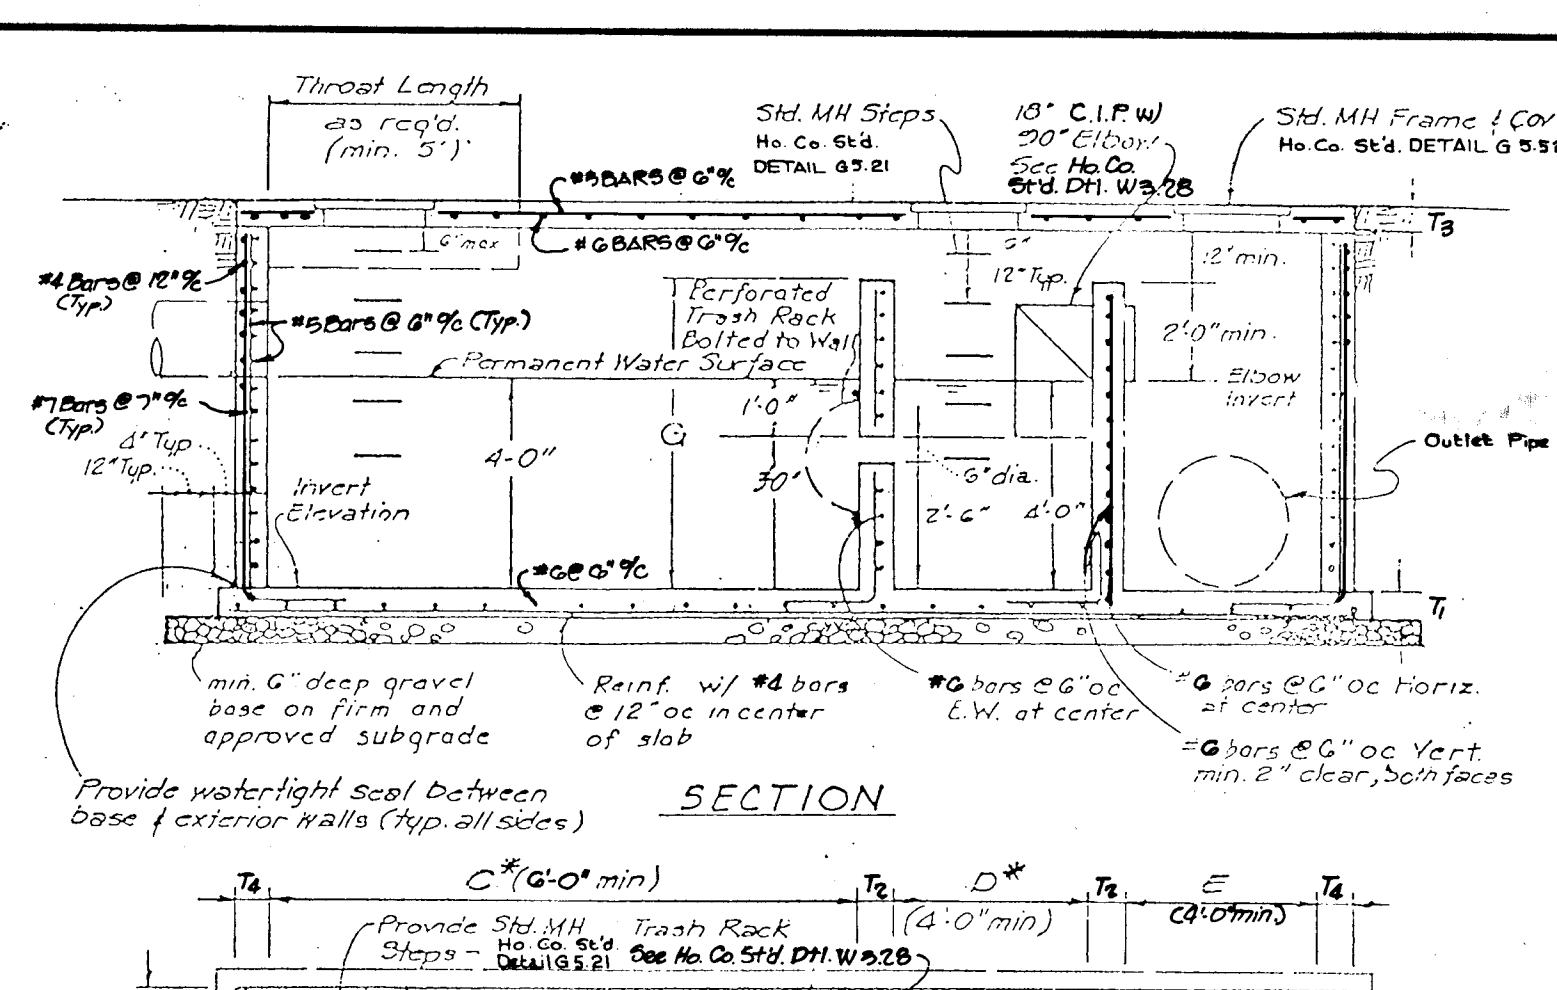 Throat Length
as req'd.
(min. 5')
Std. MH Steps
Ho. Co. St'd.
DETAIL G5.21
18" C.I.P. W/
90° Elbow
See Ho. Co.
St'd. Dtl. W3.28
Std. MH Frame & Cov
Ho. Co. St'd. DETAIL G 5.51
#5 BARS @ 6" o/c
#6 BARS @ 6" o/c
6" max
T3
12" min.
12" Typ.
#4 Bars @ 12" o/c
(Typ.)
Perforated
Trash Rack
Bolted to Wall
#5 Bars @ 6" o/c (Typ.)
2'-0" min.
Permanent Water Surface
Elbow
Invert
#7 Bars @ 7" o/c
(Typ.)
1'-0"
G
Outlet Pipe
4" Typ.
12" Typ.
4-0"
30"
6" dia.
Invert
Elevation
2'-6"
4'-0"
#6 @ 6" o/c
T1
min. 6" deep gravel
base on firm and
approved subgrade
Reinf. w/ #4 bars
@ 12" oc in center
of slab
#6 bars @ 6" oc
E.W. at center
#6 bars @ 6" oc Horiz.
at center
#6 bars @ 6" oc Vert.
min. 2" clear, both faces
Provide watertight seal between
base & exterior walls (typ. all sides)
SECTION
T4
C* (6'-0" min)
T2
D*
(4'-0" min)
T2
E
(4'-0" min.)
T4
Provide Std. MH
Steps - Ho. Co. St'd.
Detail G5.21
Trash Rack
See Ho. Co. St'd. Dtl. W3.28